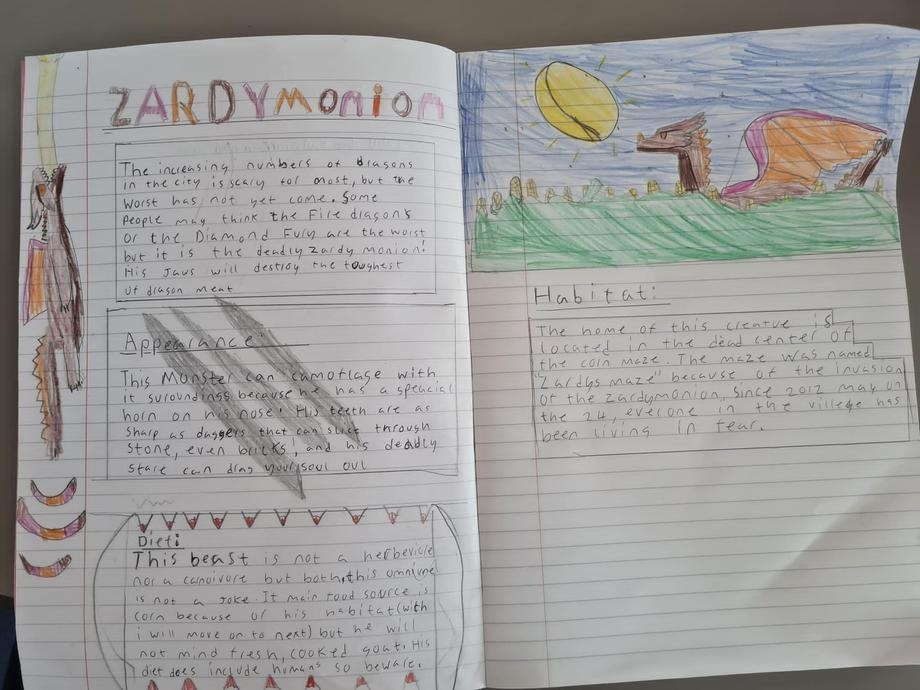 ZARDYmonion
The increasing numbers of dragons
in the city is scary for most, but the
worst has not yet come. Some
people may think the Fire dragons
or the Diamond Fury are the worst
but it is the deadly zardy monion!
His Jaws will destroy the toughest
of dragon meat
Appearance:
This Monster can camoflage with
it suroundings because he has a speacial
horn on his nose! His teeth are as
sharp as daggers that can slice through
Stone, even bricks, and his deadly
stare can drag your soul out
Diet:
This beast is not a herbevicle
nor a carnivore but both, this omnivre
is not a joke. It main food source is
corn because of his habitat (with
i will move on to next) but he will
not mind fresh, cooked goat. His
diet does include humans so beware.
Habitat:
The home of this creatue is
located in the dead center of
the corn maze. The maze was named
"Zardys maze" because of the invasion
of the zardymonion, Since 2012 may on
the 24, everone in the village has
been living in fear.